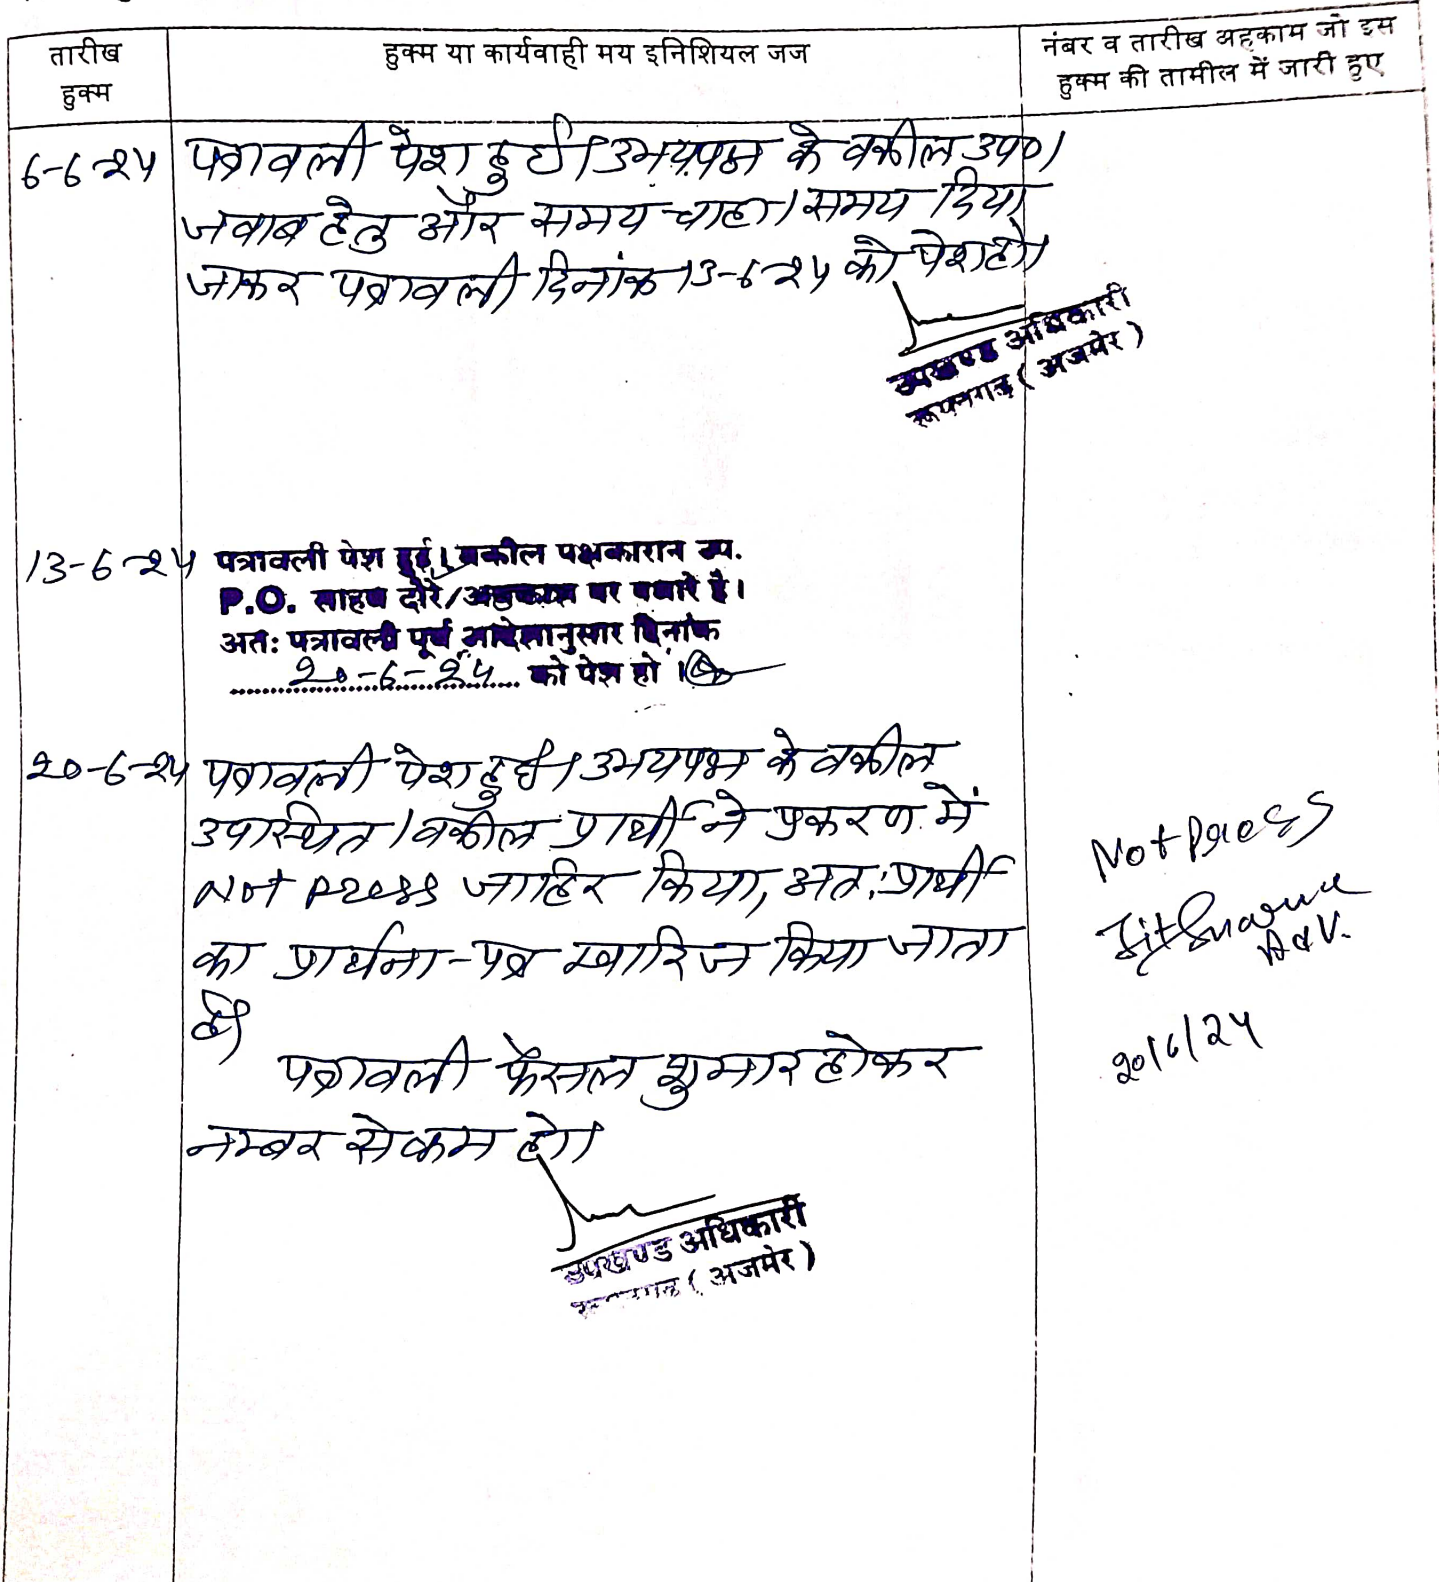 तारीख
हुक्म
हुक्म या कार्यवाही मय इनिशियल जज
नंबर व तारीख अहकाम जो इस
हुक्म की तामील में जारी हुए
6-6-24
पत्रावली पेश हुई। उभयपक्ष के वकील उप०।
जवाब हेतु और समय चाहा। समय दिया
जाकर पत्रावली दिनांक 13-6-24 को पेश हो।
उपखण्ड अधिकारी
रूपनगढ़ ( अजमेर )
13-6-24
पत्रावली पेश हुई। वकील पक्षकारान उप.
P.O. साहब दौरे/अवकाश पर पधारे है।
अत: पत्रावली पूर्व आदेशानुसार दिनांक
20-6-24 को पेश हो।
20-6-24
पत्रावली पेश हुई। उभयपक्ष के वकील
उपस्थित। वकील प्रार्थी ने प्रकरण में
Not press जाहिर किया, अत: प्रार्थी
का प्रार्थना-पत्र खारिज किया जाता
है।
पत्रावली फैसल शुमार होकर
नम्बर से कम हो।
उपखण्ड अधिकारी
( अजमेर )
Not Press
Adv.
20/6/24